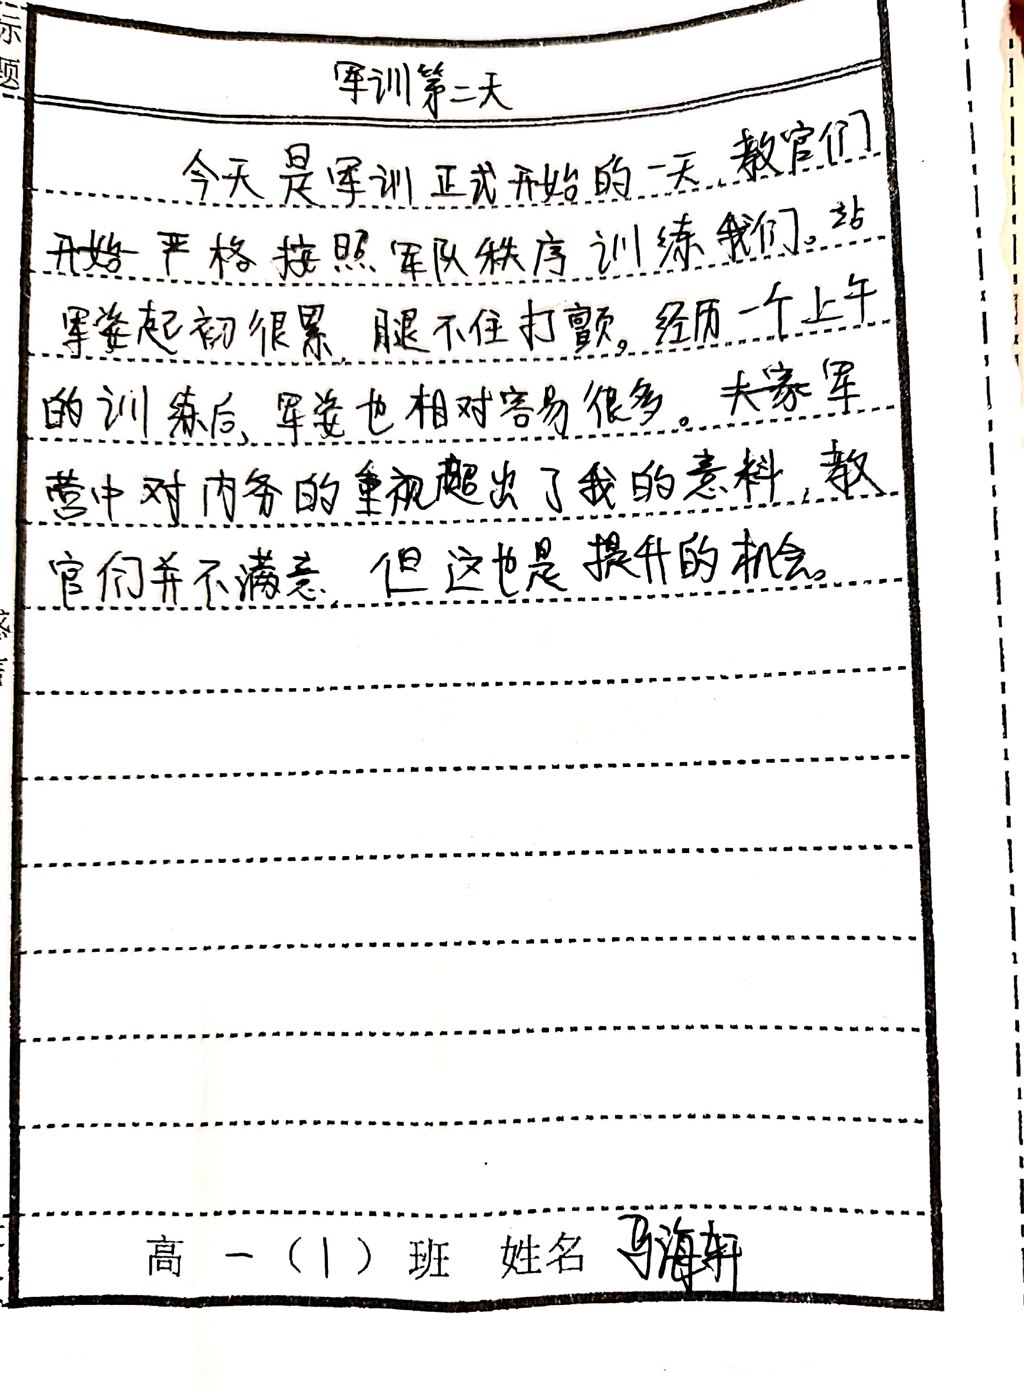 标
题
军训第二天
今天是军训正式开始的一天,教官们
开始严格按照军队秩序训练我们。站
军姿起初很累,腿不住打颤。经历一个上午
的训练后,军姿也相对容易很多。大家军
营中对内务的重视超出了我的意料,教
官们并不满意,但这也是提升的机会。
高一(1)班 姓名 马海轩